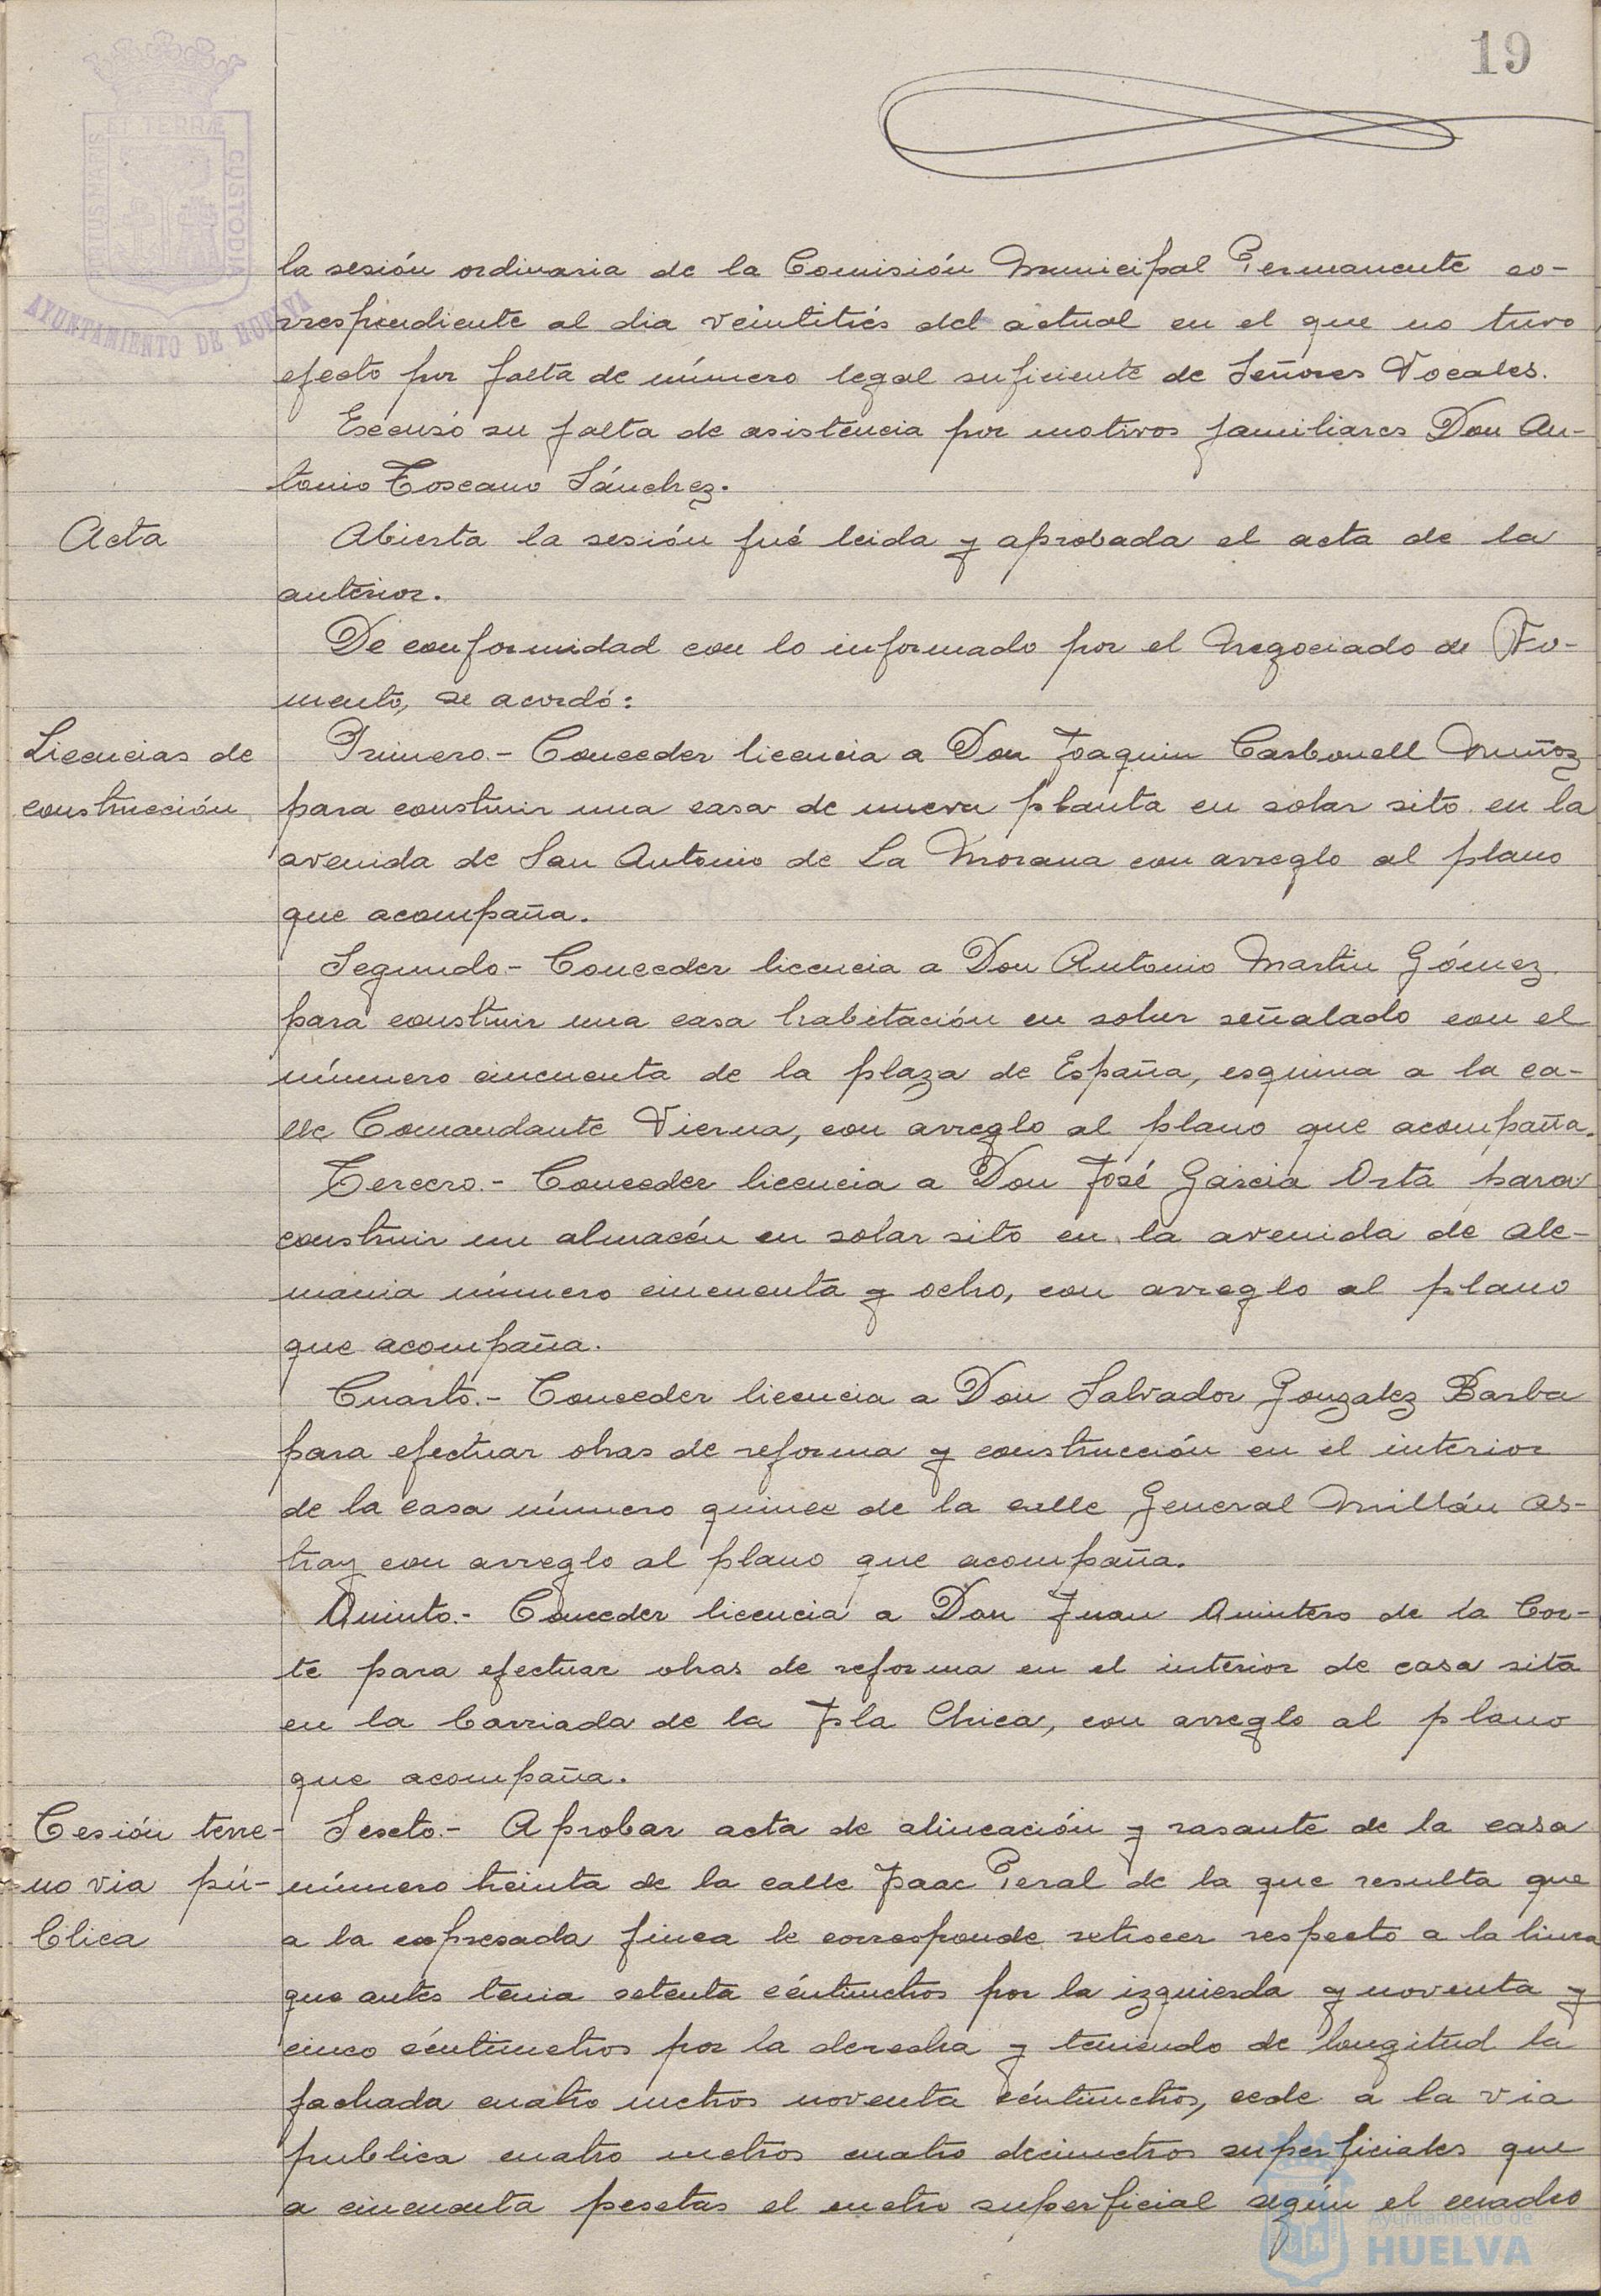 19
PORTUS MARIS
ET TERRÆ
CUSTODIA
AYUNTAMIENTO DE HUELVA
la sesión ordinaria de la Comisión Municipal Permanente co-
rrespondiente al dia veintitrés del actual en el que no tuvo
efecto por falta de número legal suficiente de Señores Vocales.
Escusó su falta de asistencia por motivos familiares Don An-
tonio Toscano Sánchez.
Acta
Abierta la sesión fué leida y aprobada el acta de la
anterior.
De conformidad con lo informado por el Negociado de Fo-
mento, se acordó:
Licencias de
construcción
Primero.- Conceder licencia a Don Joaquin Carbonell Muñoz
para construir una casa de nueva planta en solar sito en la
avenida de San Antonio de La Morana con arreglo al plano
que acompaña.
Segundo- Conceder licencia a Don Antonio Martin Gómez
para construir una casa habitación en solar señalado con el
número cincuenta de la plaza de España, esquina a la ca-
lle Comandante Vierna, con arreglo al plano que acompaña.
Tercero.- Conceder licencia a Don José Garcia Orta para
construir un almacén en solar sito en la avenida de Ale-
mania número cincuenta y ocho, con arreglo al plano
que acompaña.
Cuarto.- Conceder licencia a Don Salvador Gonzalez Barba
para efectuar obras de reforma y construcción en el interior
de la casa número quince de la calle General Millán As-
tray con arreglo al plano que acompaña.
Quinto.- Conceder licencia a Don Juan Quintero de la Cor-
te para efectuar obras de reforma en el interior de casa sita
en la barriada de la Isla Chica, con arreglo al plano
que acompaña.
Cesión terre-
no via pú-
blica
Sexto.- Aprobar acta de alineación y rasante de la casa
número treinta de la calle Isaac Peral de la que resulta que
a la expresada finca le corresponde retrocer respecto a la linea
que antes tenia setenta céntimetros por la izquierda y noventa y
cinco céntimetros por la derecha y teniendo de longitud la
fachada cuatro metros noventa céntimetros, cede a la via
publica cuatro metros cuatro decimetros superficiales que
a cincuenta pesetas el metro superficial según el cuadro
Ayuntamiento de
HUELVA